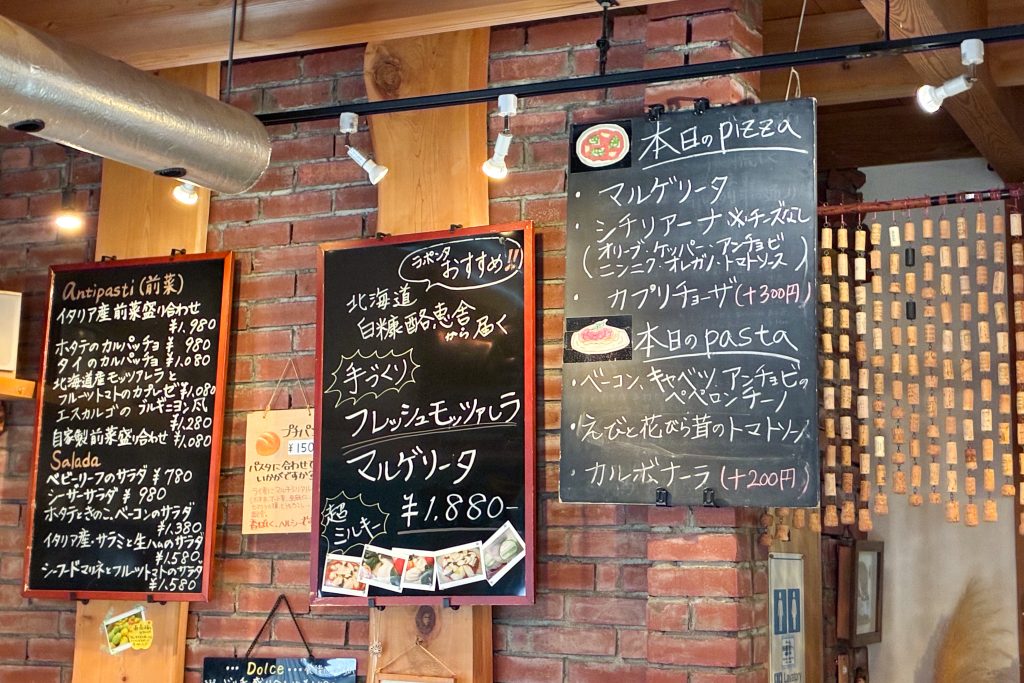 antipasti (前菜)
イタリア産前菜盛り合わせ
¥1,980
ホタテのカルパッチョ ¥980
タイのカルパッチョ ¥1,080
北海道産モッツァレラと
フルーツトマトのカプレーゼ ¥1,080
エスカルゴのブルギニヨン風
¥1,280
自家製前菜盛り合わせ ¥1,080
Salada
ベビーリーフのサラダ ¥780
シーザーサラダ ¥980
ホタテときのこ、ベーコンのサラダ
¥1,380
イタリア産・サラミと生ハムのサラダ
¥1,580
シーフードマリネとフルーツトマトのサラダ
¥1,580
プチパン
¥150
パスタに合わせて
いかがですか?
ラ・ポンタ
おすすめ!!
北海道
白糠酪恵舎
から届く
手づくり
フレッシュモッツァレラ
マルゲリータ
¥1,880-
超
ミルキー
本日のpizza
・マルゲリータ
・シチリアーナ ※チーズなし
(オリーブ・ケッパー・アンチョビ
ニンニク・オレガノ・トマトソース)
・カプリチョーザ (+300円)
本日のpasta
・ベーコン、キャベツ、アンチョビの
ペペロンチーノ
・えびと花びら茸のトマトソース
・カルボナーラ (+200円)
... Dolce ...
Lavatory